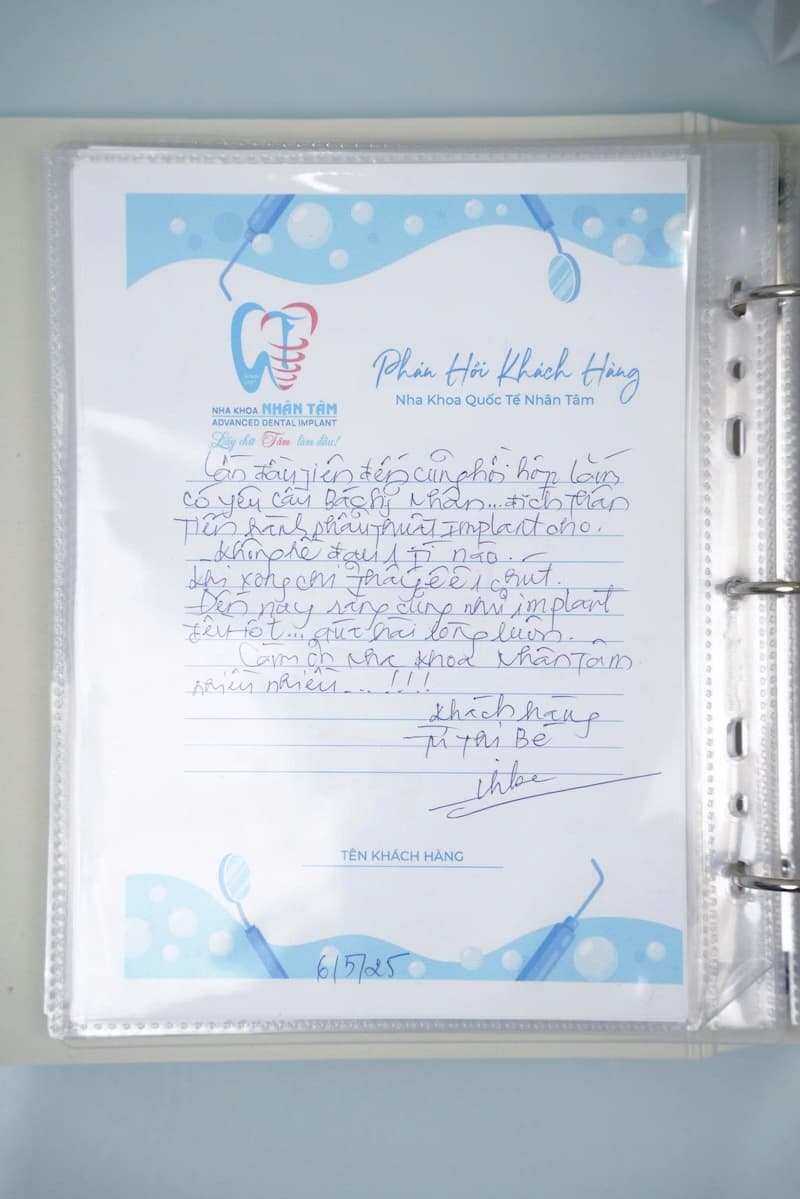 SINCE
NHA KHOA NHÂN TÂM
ADVANCED DENTAL IMPLANT
Lấy chữ Tâm làm đầu!
Phản Hồi Khách Hàng
Nha Khoa Quốc Tế Nhân Tâm
Lần đầu tiên đến cũng hồi hộp lắm
có yêu cầu Bác sỹ Nhân... đích thân
Tiến hành phẩu thuật implant cho.
Không hề đau 1 tí nào.
Khi xong chỉ thấy ê ê 1 chút.
Đến nay răng cũng như implant
đều tốt... quá hài lòng luôn.
Cảm ơn Nha Khoa Nhân Tâm
nhiều nhiều...!!!
Khách hàng
Thị Bé
TÊN KHÁCH HÀNG
6/5/25